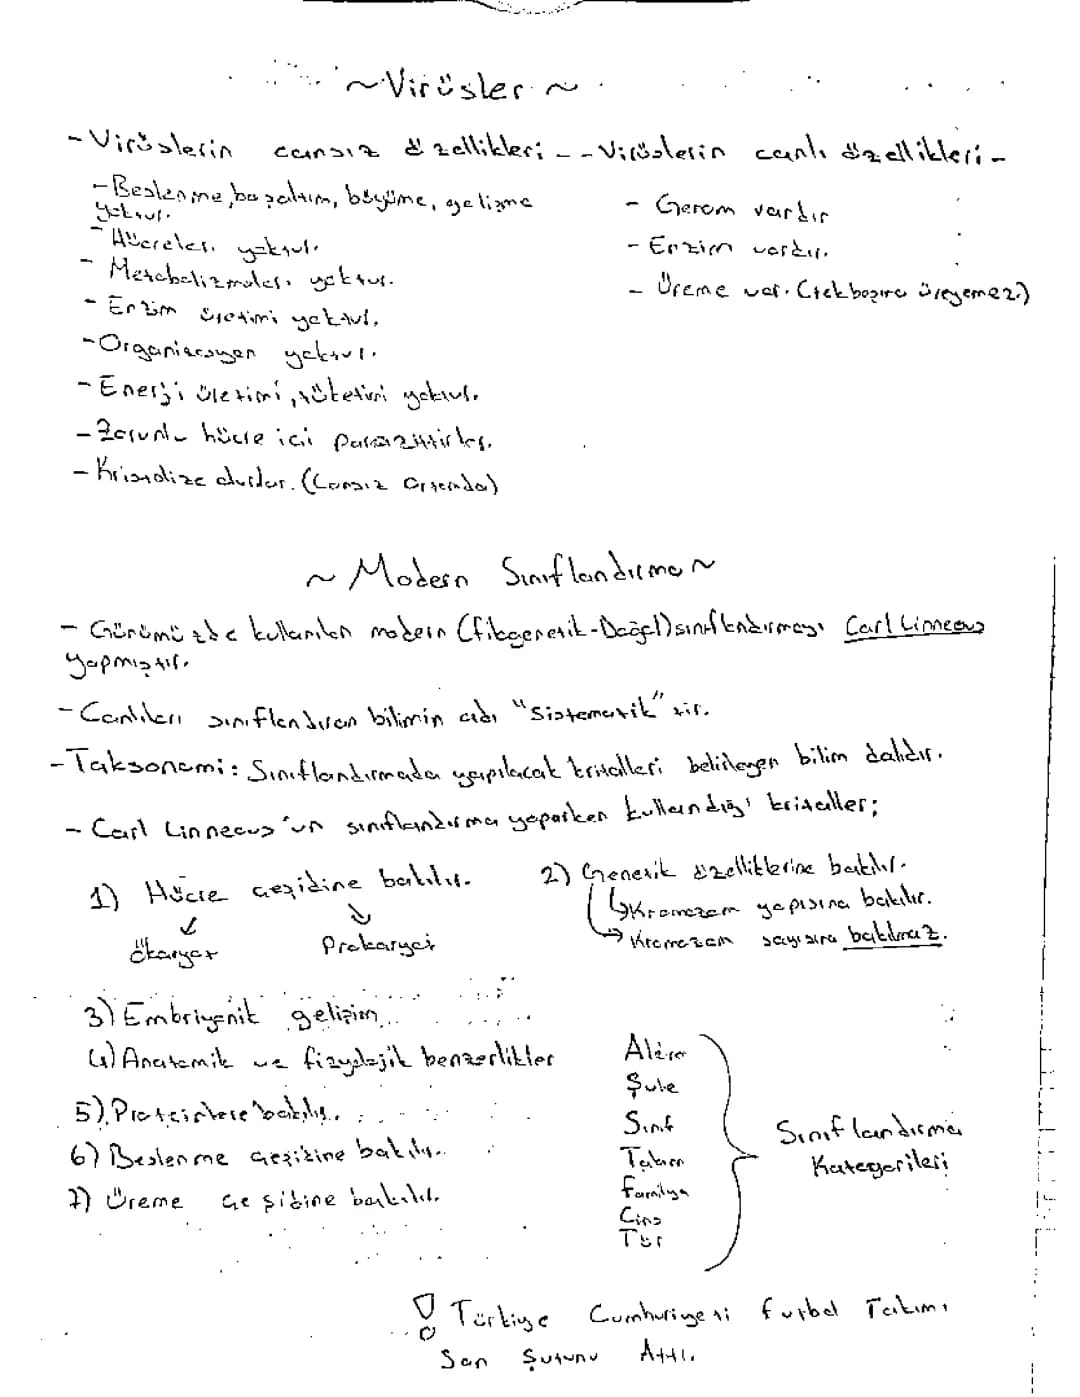 ~Virüsler~
-Virüslerin cansız özellikleri - -Virüslerin canlı özellikleri-
-Beslenme, boşaltım, büyüme, gelişme
yoktur.
-Hücreleri yoktur.
- Metabolizmaları yoktur.
- Enzim üretimi yoktur.
-Organizasyon yoktur.
-Enerji üretimi, tüketimi yoktur.
-Zorunlu hücre içi parazittirler.
-Kristalize olurlar. (Cansız Ortamda)
- Genom vardır
- Enzim vardır.
- Üreme var. (tek başına üreyemez.)
~ Modern Sınıflandırma ~
- Günümüzde kullanılan modern (filogenetik-Doğal) sınıflandırmayı Carl Linneaus
yapmıştır.
-Canlıları sınıflandıran bilimin adı "Sistematik" tir.
-Taksonomi: Sınıflandırmada yapılacak kriterleri belirleyen bilim dalıdır.
- Carl Linneaus'un sınıflandırma yaparken kullandığı kriterler;
1) Hücre çeşidine bakılır.
Ökaryot Prokaryot
2) Genetik özelliklerine bakılır.
Kromozom yapısına bakılır.
Kromozom sayısına bakılmaz.
3) Embriyonik gelişim
4) Anatomik ve fizyolojik benzerlikler
5) Proteinlere bakılış.
6) Beslenme çeşidine bakılır.
7) Üreme çeşidine bakılır.
Alem
Şube
Sınıf
Takım
Familya
Cins
Tür
Sınıflandırma
Kategorileri
! Türkiye Cumhuriyeti Futbol Takımı
Son Şutunu Attı.